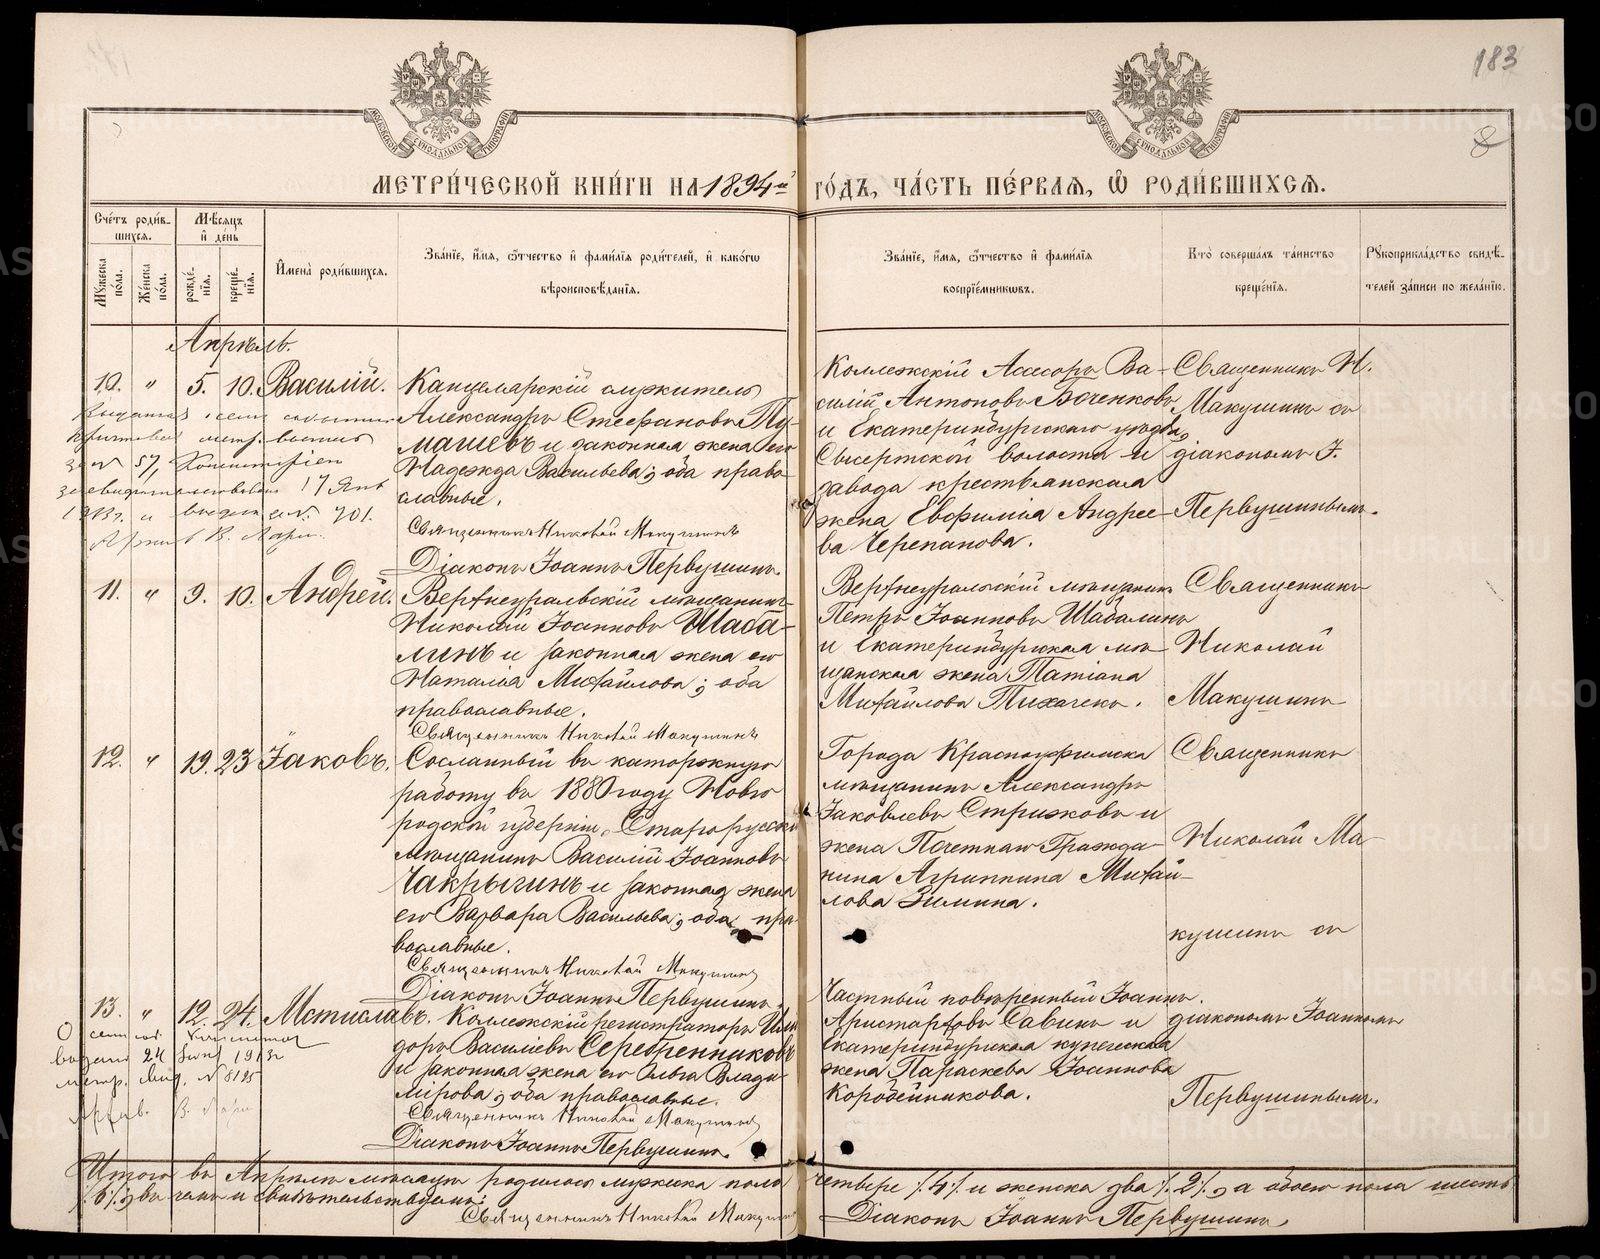 183
8
МОСКОВСКОЙ СѴНОДАЛЬНОЙ ТИПОГРАФІИ
МОСКОВСКОЙ СѴНОДАЛЬНОЙ ТИПОГРАФІИ
МЕТРИ́ЧЕСКОЙ КНИ́ГИ НА 1894й ГО́ДЪ, ЧА́СТЬ ПЕ́РВАЯ, Ѽ РОДИ́ВШИХСЯ.
Сче́тъ роди́в-
шихся.
Мꙋ́жеска по́ла.
Же́нска по́ла.
Мѣ́сяцъ и҆ де́нь
рожде́нїя.
креще́нїя.
И҆мена̀ роди́вшихся.
Зва́нїе, и҆́мя, ѻ҆́тчество и҆ фами́лїя роди́телей, и҆ како́гѡ
вѣроисповѣ́данїя.
Зва́нїе, и҆́мя, ѻ҆́тчество и҆ фами́лїя
воспрїе́мникѡвъ.
Кто̀ соверша́лъ та́инство
креще́нїя.
Рꙋкоприкла́дство свидѣ́-
телей за́писи по жела́нїю.
Апрѣль.
10. " 5. 10. Василій.
Канцелярскій служитель
Александръ Стефановъ Ту-
машевъ и законная жена его
Надежда Васильева; оба право-
славные.
Священникъ Николай Макушинъ
Діаконъ Іоаннъ Первушинъ.
Коллежскій Ассесоръ Ва-
силій Антоновъ Боченковъ
и Екатеринбургскаго уѣзда,
Сысертской волости и
завода крестьянская
жена Евфимія Андрее-
ва Черепанова.
Священникъ Н.
Макушинъ съ
діакономъ І.
Первушинымъ.
11. " 9. 10. Андрей.
Верхнеуральскій мѣщанинъ
Николай Іоанновъ Шаба-
линъ и законная жена его
Наталія Михайлова; оба
православные.
Священникъ Николай Макушинъ
Верхнеуральскій мѣщанинъ
Петръ Іоанновъ Шабалинъ
и Екатеринбургская мѣ-
щанская жена Татіана
Михайлова
Священникъ
Николай
Макушинъ
12. " 19. 23 Іаковъ.
Сосланный въ каторжную
работу въ 1880 году Новго
родской губерніи, Старорусскій
мѣщанинъ Василій Іоанновъ
Чакрыгинъ и законная жена
его Варвара Васильева; оба пра
вославные.
Священникъ Николай Макушинъ
Діаконъ Іоаннъ Первушинъ.
Города Красноуфимска
мѣщанинъ Александръ
Іаковлевъ Стрижковъ и
жена Почетнаго Гражда-
нина Агриппина Михай-
лова Зимина.
Священникъ
Николай Ма-
кушинъ съ
13. " 12. 24. Мстиславъ.
Коллежскій регистраторъ Исі
доръ Василіевъ Серебренниковъ
и законная жена его Ольга Влади-
мірова; оба православные.
Священникъ Николай Макушинъ
Діаконъ Іоаннъ Первушинъ.
Частный повѣренный Іоаннъ
Аристарховъ Савинъ и
Екатеринбургская купеческая
жена Параскева Іоаннова
Коробейникова.
діакономъ Іоанномъ
Первушинымъ.
Итого въ Апрѣлѣ мѣсяцѣ родилось мужска пола четыре /.4/. и женска два /.2/., а обоего пола шесть
/.6/. въ чемъ и свидѣтельствуемъ:
Священникъ Николай Макушинъ
Діаконъ Іоаннъ Первушинъ.